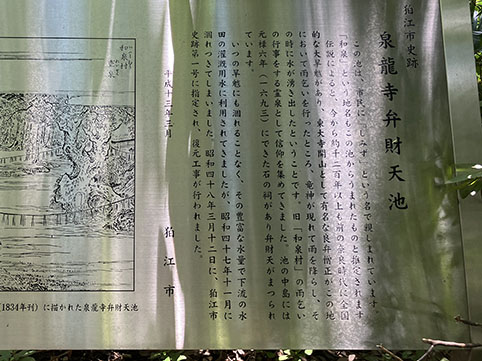 狛江市史跡
泉龍寺弁財天池
この池は、市民に「しみず」という名で親しまれています。
「和泉」という地名もこの池からうまれたものと推定されます
伝説によると、今から約千二百年以上も前の奈良時代に全国
的な大旱魃があり、東大寺開山として有名な良弁僧正がこの地
において雨乞いを行ったところ、竜神が現れて雨を降らし、そ
の時に水が湧き出したということです。旧「和泉村」の雨乞い
の行事をする霊泉として信仰を集めてきました。池の中島には
元禄六年(一六九三)にできた石の祠があり弁財天がまつられ
ています。
いつの旱魃にも涸れることなく、その豊富な水量で下流の水
田の灌漑用水に利用されてきましたが、昭和四十七年十一月に
涸れつきてしまいました。昭和四十八年三月十二日に、狛江市
史跡第一号に指定され、復元工事が行われました。
平成十三年三月
狛江市
和泉村
泉
(1834年刊)に描かれた泉龍寺弁財天池